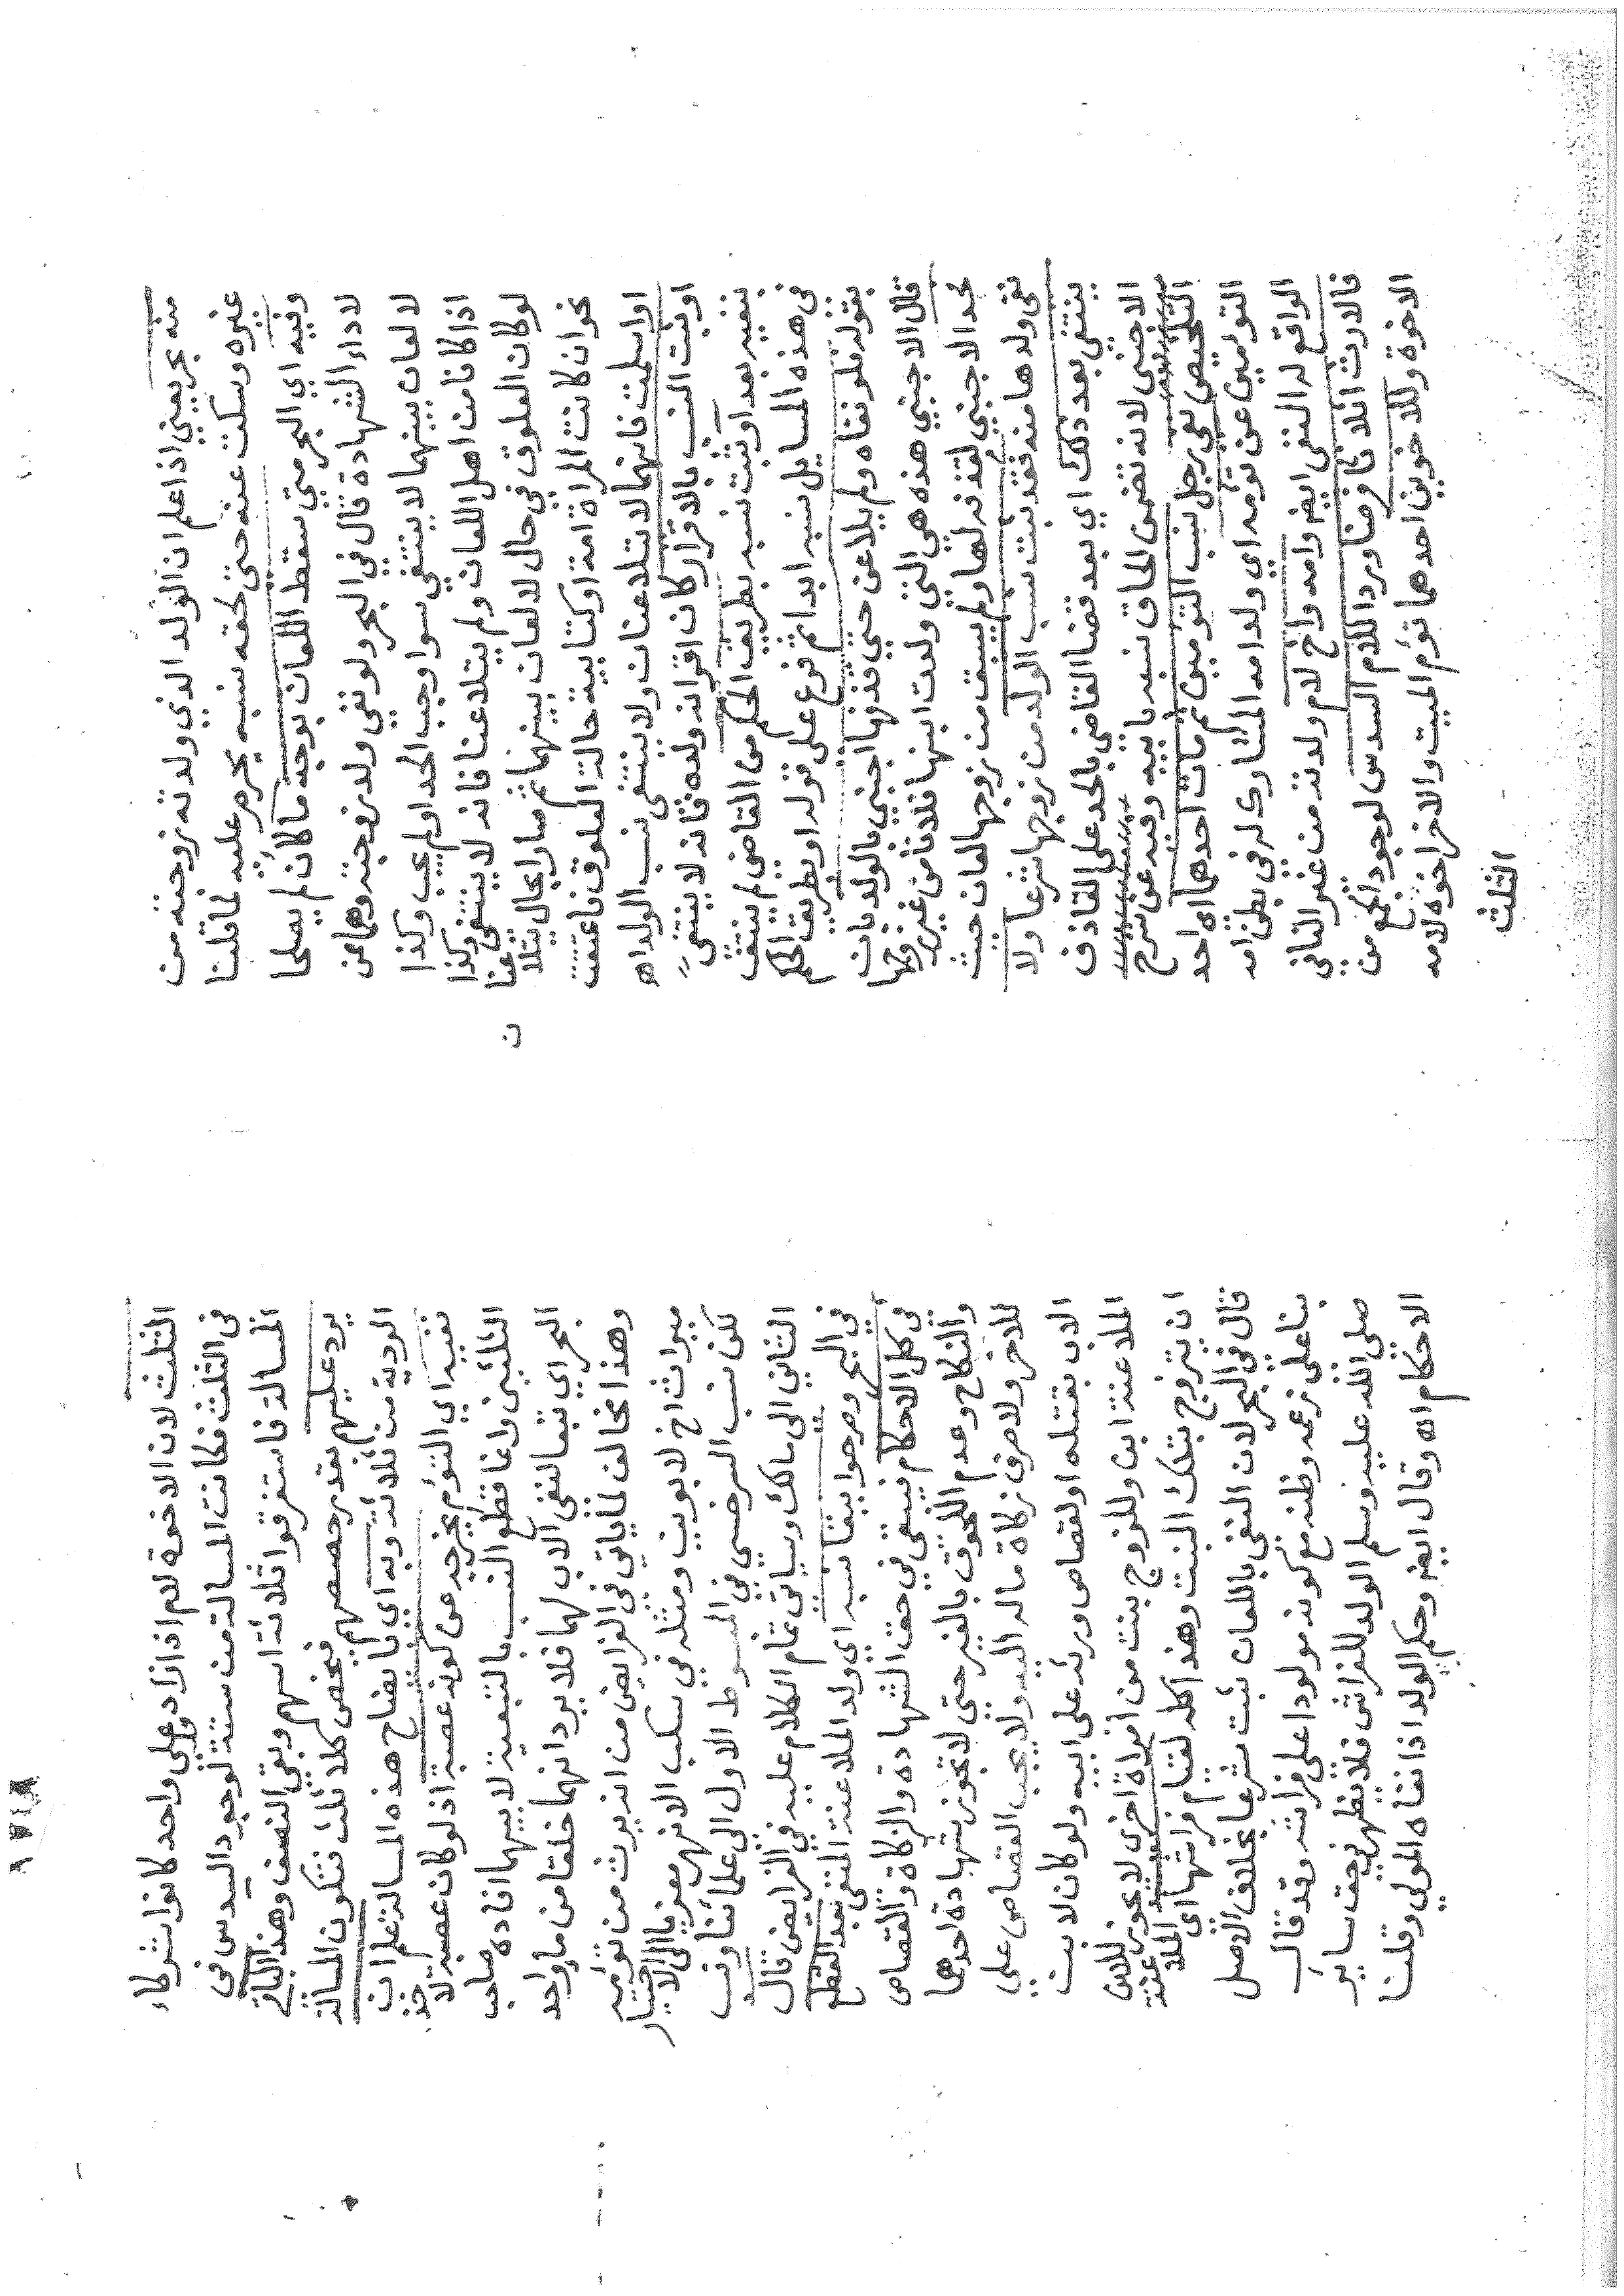 منه بحر يعني اذا علم ان الولد الذي ولدته زوجته من
غيره وسكت عنه حتى لحقه نسبه يحرم عليه لما قلنا
وفيه اي البحر متي سقط اللعان بوجه ما كان لم يصلحا
لاداء الشهادة قال في البحر ولو نفي ولد زوجته وهما ممن
لا لعان بينهما لا ينتفي سوا وجب الحد او لم يجب وكذا
اذا كانا من اهل اللعان ولم يتلاعنا فانه لا ينتفي وكذا
لو كان العلوق في حال لا لعان بينهما ثم صارا بحال يتلاعنا
نحو ان كانت المراة امة او كتابية حالة العلوق فاعتقت
او اسلمت فانهما لا يتلاعنان ولا ينتفى نسب الولد اه
او ثبت النسب بالاقرار كان اقر انه ولده فانه لا ينتفى
بنفيه بعد او ثبت نسبه بطريق الحكم من القاضي لم ينتف
في هذه المسايل نسبه ابدا ثم فرع على قوله او بطريق الحكم
بقوله فلو نفاه ولم يلاعن حتي قذفها اجنبي بالولد بان
قال الاجنبي هذه هي التي ولدت ابنها فلانا من غير زوجها
يحد الاجنبي لقذفه لها ولم يسبق من زوجها لعان حيث
نفى ولدها منه فقد ثبت نسب الولد من زوجها شرعا ولا
ينتفي بعد ذلك اي بعد قضا القاضي بالحد على القاذف
الاجنبي لانه تضمن الحاق نسبه بابيه وفيه عن شرح
التلخيص نفي رجل نسب التوءمين ثم مات احدهما اه احد
التوءمين عن توءمه اي ولد امه المشارك له في بطن امه
الواقع له النفي ايضا وامه واخ لام ولدته من غير النافي
فالارث اثلاثا فرضا وردا للام السدس لوجود الجمع من
الاخوة وللاخوين احدهما توءم الميت والاخر اخوه لامه
الثلث
الثلث لان الاخوة لام اذا زادوا على واحد كانوا شركاء
في الثلث فكانت المسالة من ستة لوجود السدس في
المسالة فاستغرقوا ثلاثة اسهم وبقي النصف وهذا الباقي
يرد عليهم بقدر حصصهم فيخص كلا ثلث فتكون المسالة
الردية من ثلاثة وبه اي بايضاح هذه المسالة علم ان
نفيه اي التوءم يخرجه عن كونه عصبة اذ لو كان عصبة لاخذ
الثلثين وانما قطع النسب بالتبعية لابيهما افاده صاحب
البحر اي تبعا لنفي الاب لهما فلا يرد انهما خلقا من ماء واحد
وهذا مخالف لما ياتي في الفرايض من انه يرث من توءمه
ميراث اخ لابوين ومثله في سكب الانهر معزيا الى الاختيار
لكن نسب السرخسي في المبسوط الاول الى علمائنا ونسب
الثاني الى مالك وسياتي تمام الكلام عليه في الفرايض قال
في البحر وصرحوا ببقا نسبه اي ولد الملاعنة المنفي بعد القطع
في كل الاحكام فيبقى في حق الشهادة والزكاة والقصاص
والنكاح وعدم اللحوق بالغير حتي لا تجوز شهادة احدهما
للاخر ولا صرف زكاة ماله اليه ولا يجب القصاص علي
الاب بقتله او لقصاص ورثه على ابيه ولو كان لابن
الملاعنة ابن وللزوج بنت من امراة اخرى لا يجوز للابن
ان يتزوج بتلك البنت وهذا كله لقيام فراشها اي الملاعنة
قال في البحر لان النفي باللعان ثبت شرعا بخلاف الاصل
بنا على زعمه وظنه مع كونه مولودا على فراشه وقد قال
صلى الله عليه وسلم الولد للفراش فلا يظهر في حق ساير
الاحكام اه وقال ايضا وحكم الولد اذا نفاه المولي وقلنا